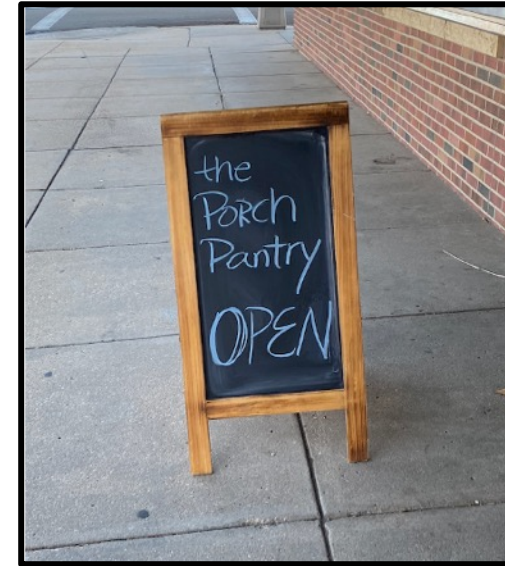 the
PORCH
Pantry
OPEN